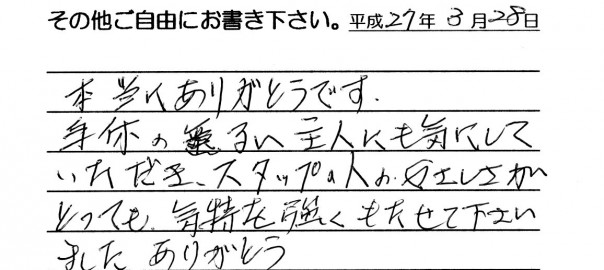 その他ご自由にお書き下さい。平成27年 3月28日
本当にありがとうです.
身体の悪るい主人にも気にして
いただき、スタップの人のやさしさが
とっても、気持を強くもたせて下さい
ました ありがとう